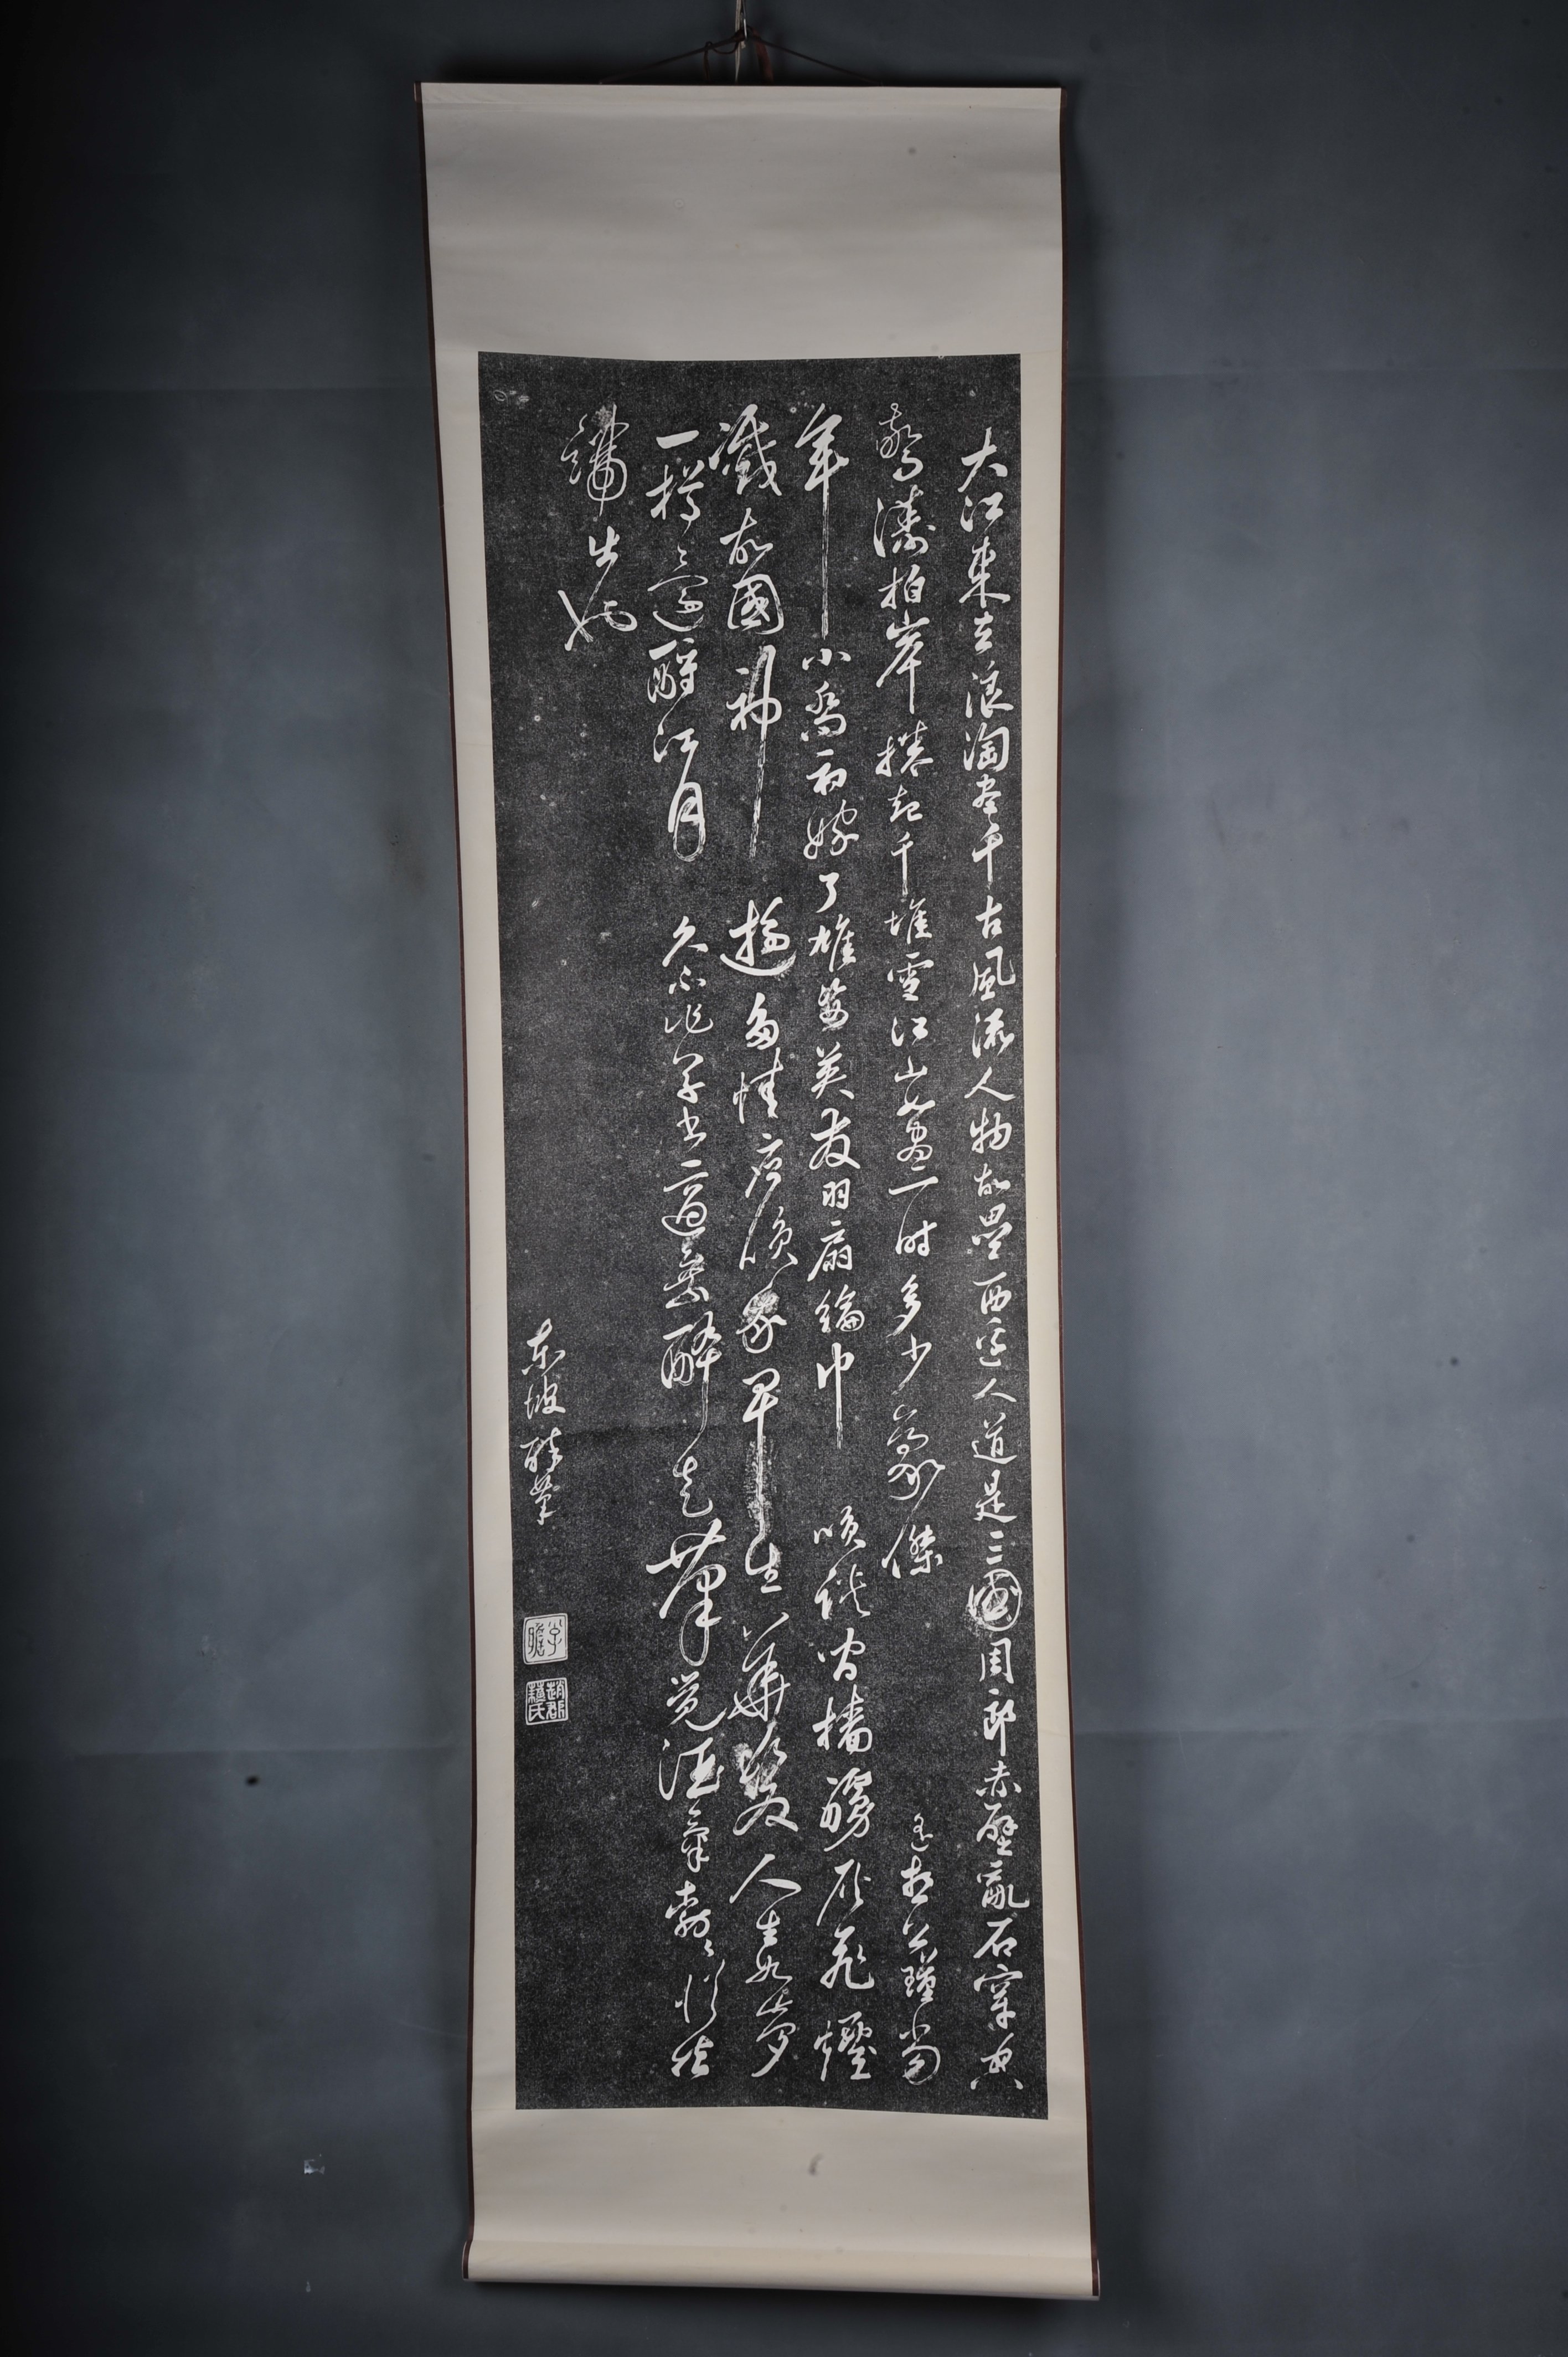 大江東去浪淘盡千古風流人物故壘西邊人道是三國周郎赤壁亂石穿空
驚濤拍岸捲起千堆雪江山如畫一時多少豪傑 遙想公瑾當
年小喬初嫁了雄姿英發羽扇綸巾 笑談間檣艣灰飛煙
滅故國神遊多情應笑我早生華髮人生如夢
一樽還酹江月 久不作草書適乘醉走筆覺酒氣勃勃從
指端出也
東坡醉筆
子瞻
趙郡蘇氏